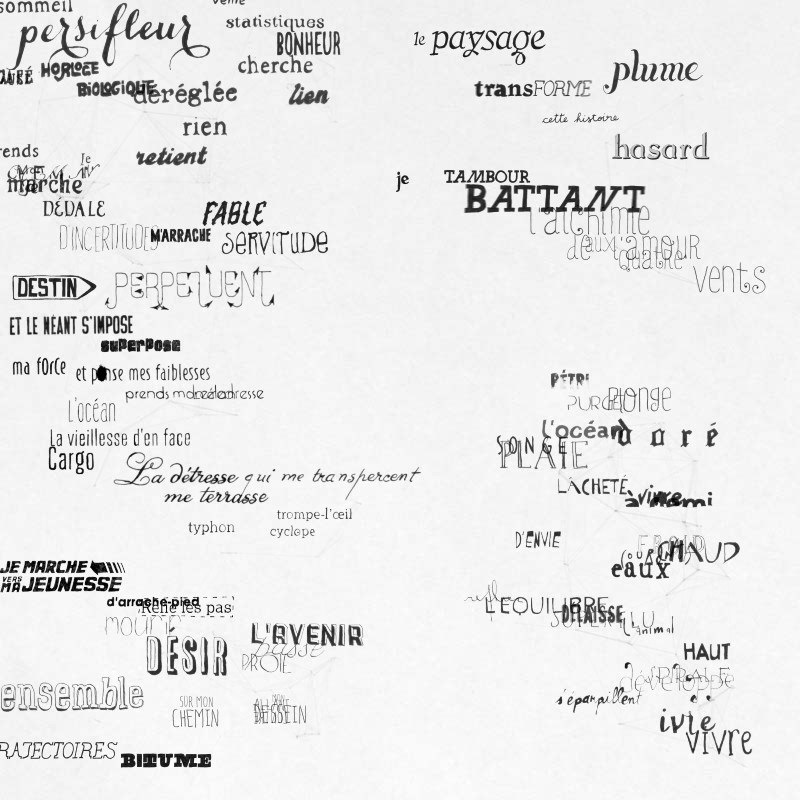 sommeil
persifleur
statistiques
BONHEUR
HORLOGE
cherche
BIOLOGIQUE
déréglée
lien
rien
retient
Je
marche
DÉDALE
FABLE
D'INCERTITUDES
M'ARRACHE
SERVITUDE
DESTIN
PERPETUENT
ET LE NÉANT S'IMPOSE
superpose
ma force
et panse mes faiblesses
prends
L'océan
La vieillesse d'en face
Cargo
La détresse qui me transpercent
me terrasse
trompe-l'œil
typhon
cyclope
JE MARCHE
VERS
MA JEUNESSE
d'arrache-pied
Relie les pas
DÉSIR
L'AVENIR
passe
DROIE
ensemble
SUR MON
CHEMIN
DESSEIN
TRAJECTOIRES
BITUME
le paysage
plume
transFORME
cette histoire
hasard
je
TAMBOUR
BATTANT
l'alchimie
de
l'amour
aux
quatre
vents
PÉTRI
PURGE
plonge
l'océan
doré
SONGE
PLATE
LÂCHETÉ
à vivre
D'ENVIE
FROID
CHAUD
eaux
L'ÉQUILIBRE
DÉLAISSE
Animal
HAUT
développe
s'éparpillent
ivre
vivre